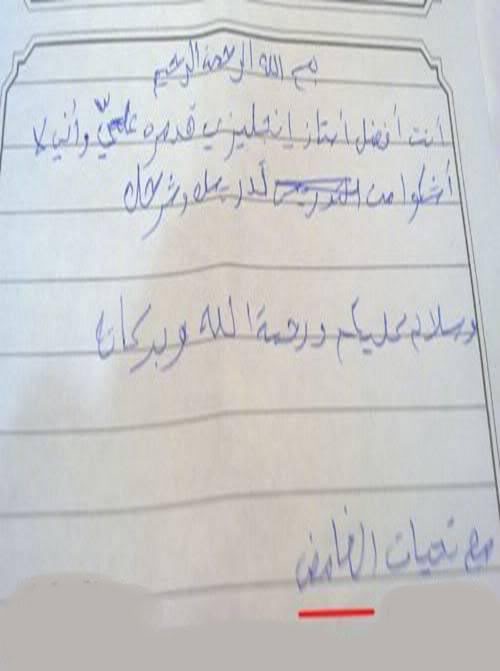 بسم الله الرحمة الرحيم
أنت أفضل أستاذ إنجليزي قد مره علميّ وأني لا
أشكوا من التدريس لدريسك وشرحك
وسلام عليكم ورحمة الله وبركاته
مع تحيات الغامض